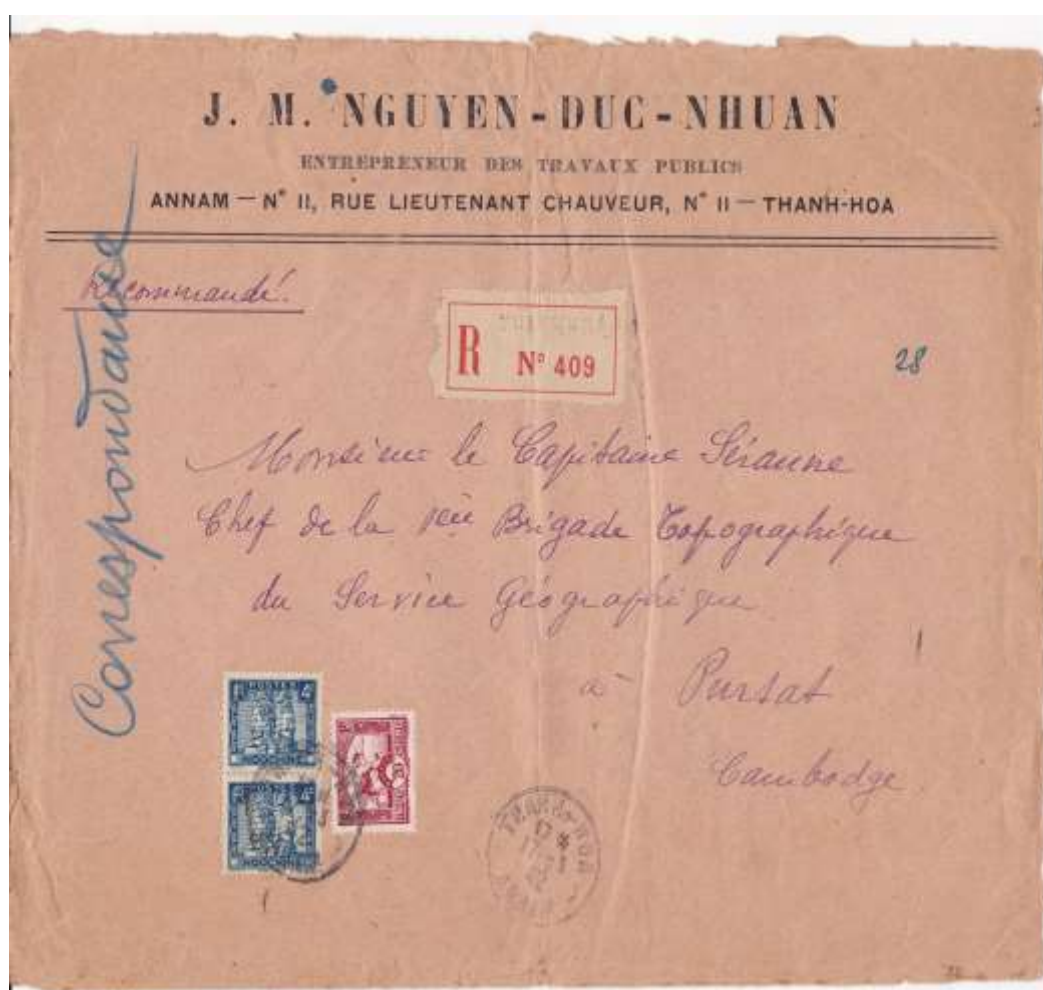 J. M. NGUYEN-DUC-NHUAN
ENTREPRENEUR DES TRAVAUX PUBLICS
ANNAM — N° 11, RUE LIEUTENANT CHAUVEUR, N° 11 — THANH-HOA
Recommandé.
Correspondance
R N° 409
28
Monsieur le Capitaine Séranne
Chef de la Brigade Topographique
du Service Géographique
à Pursat
Cambodge
POSTES
INDOCHINE
POSTES
INDOCHINE
THANH-HOA
ANNAM